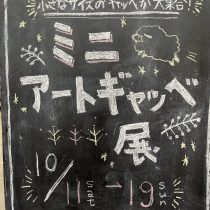 小さなサイズのギャッベが大集合!
ミニ
アートギャッベ
展
10/11sat-19sun